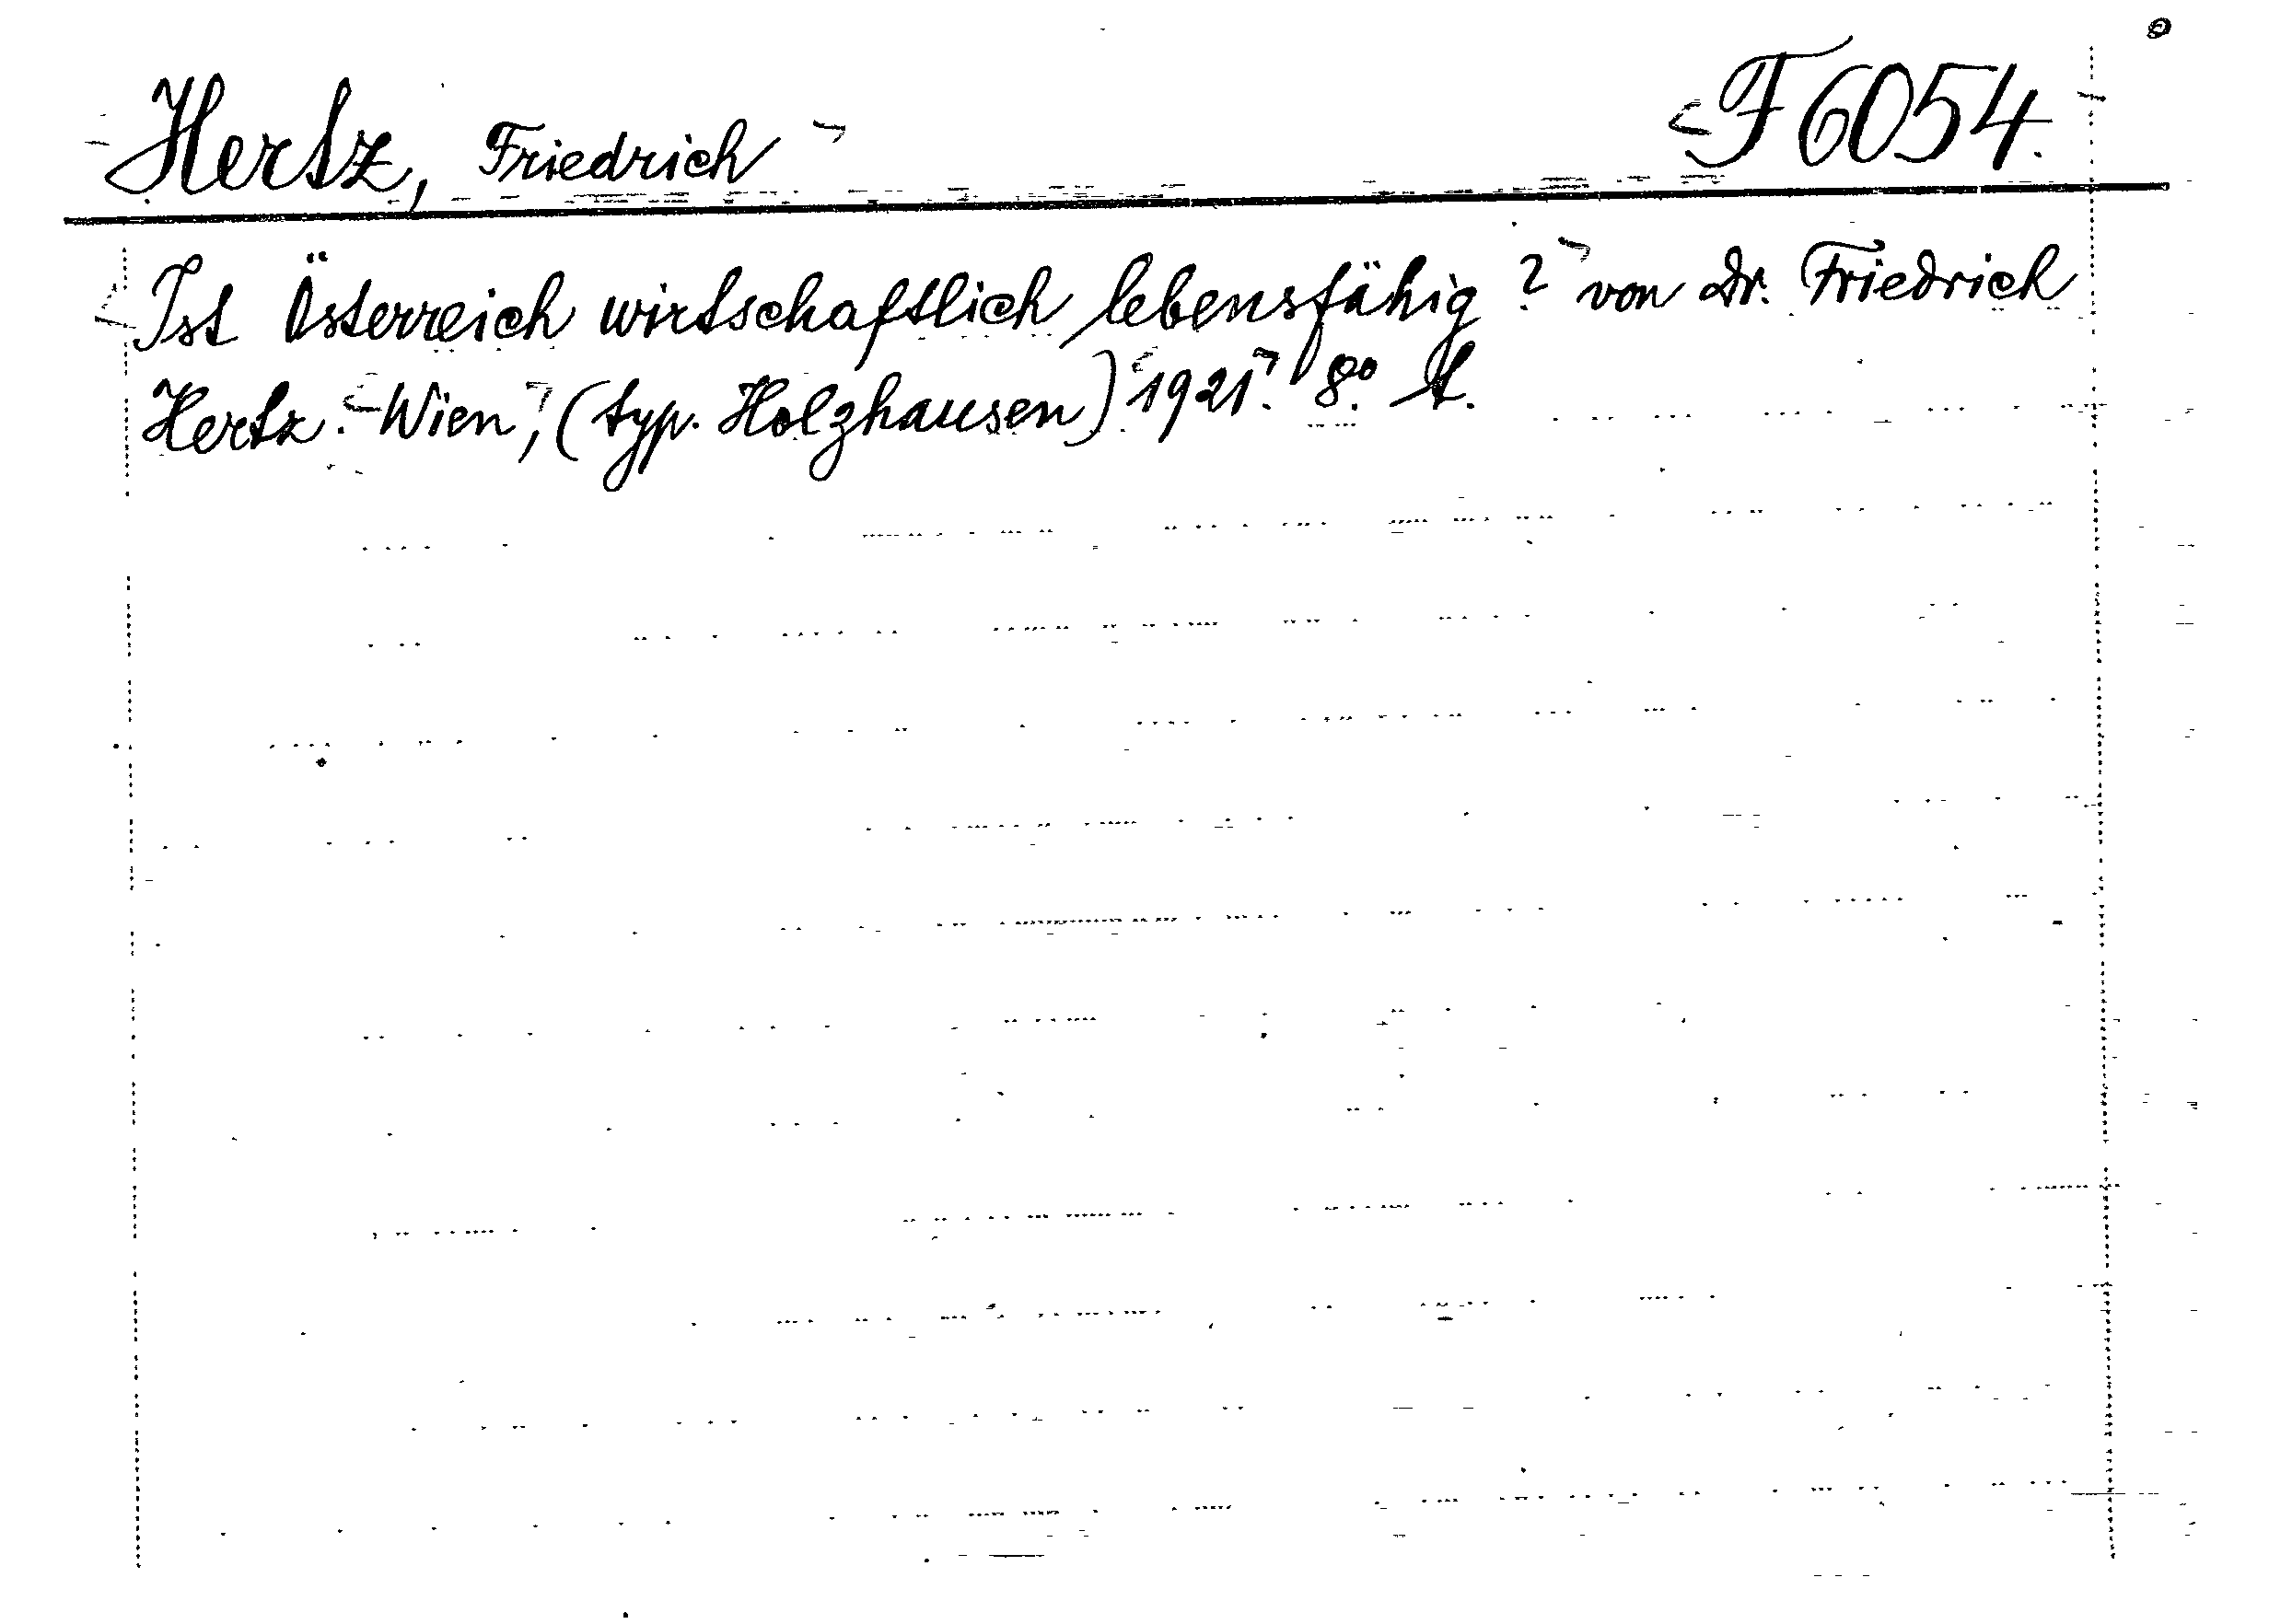 Hertz, Friedrich F 6054.
Ist Österreich wirtschaftlich lebensfähig? von Dr. Friedrich
Hertz. Wien, (typ. Holzhausen) 1921. 8.°